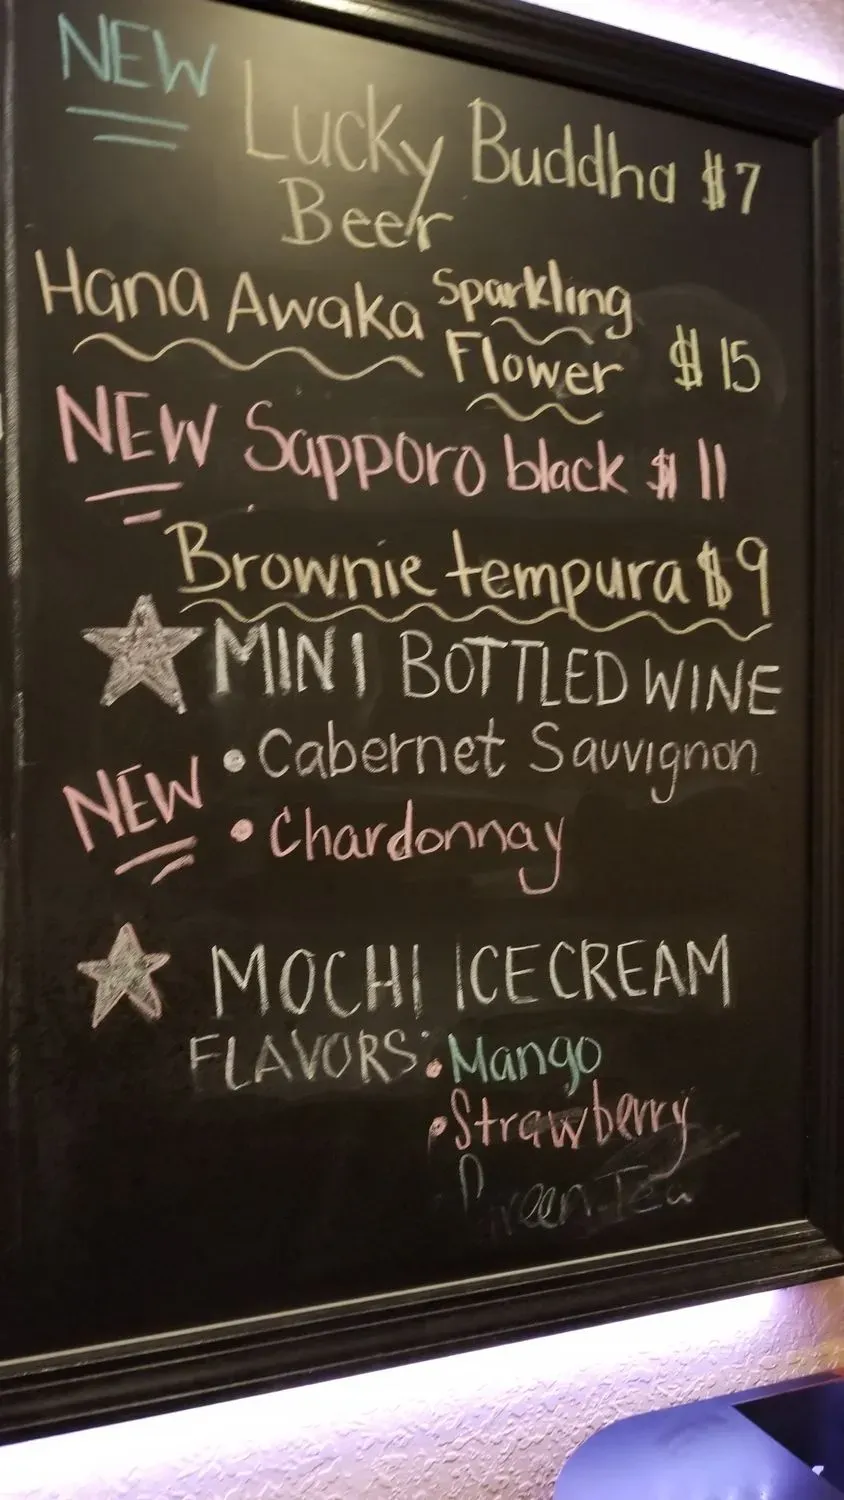 NEW Lucky Buddha $7
Beer
Hana Awaka Sparkling
Flower $15
NEW Sapporo black $11
Brownie tempura $9
MINI BOTTLED WINE
• Cabernet Sauvignon
NEW • Chardonnay
MOCHI ICE CREAM
FLAVORS: • Mango
• Strawberry
Green Tea